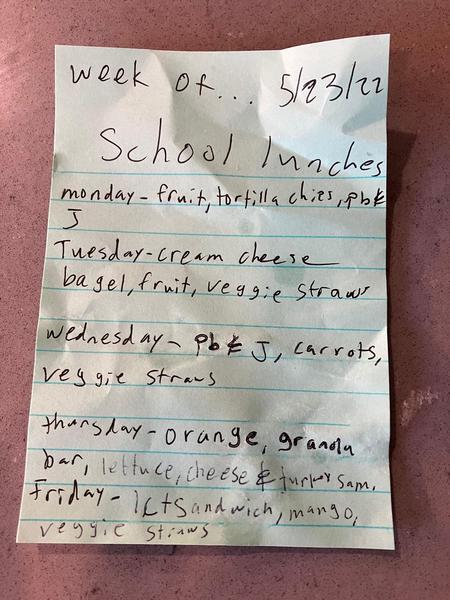 week of... 5/23/22
School lunches
monday - fruit, tortilla chips, pb&
J
Tuesday - cream cheese
bagel, fruit, veggie straws
wednesday - pb & J, carrots,
veggie straws
thursday - orange, granola
bar, lettuce, cheese & turkey sam.
Friday - lct sandwich, mango,
veggie straws